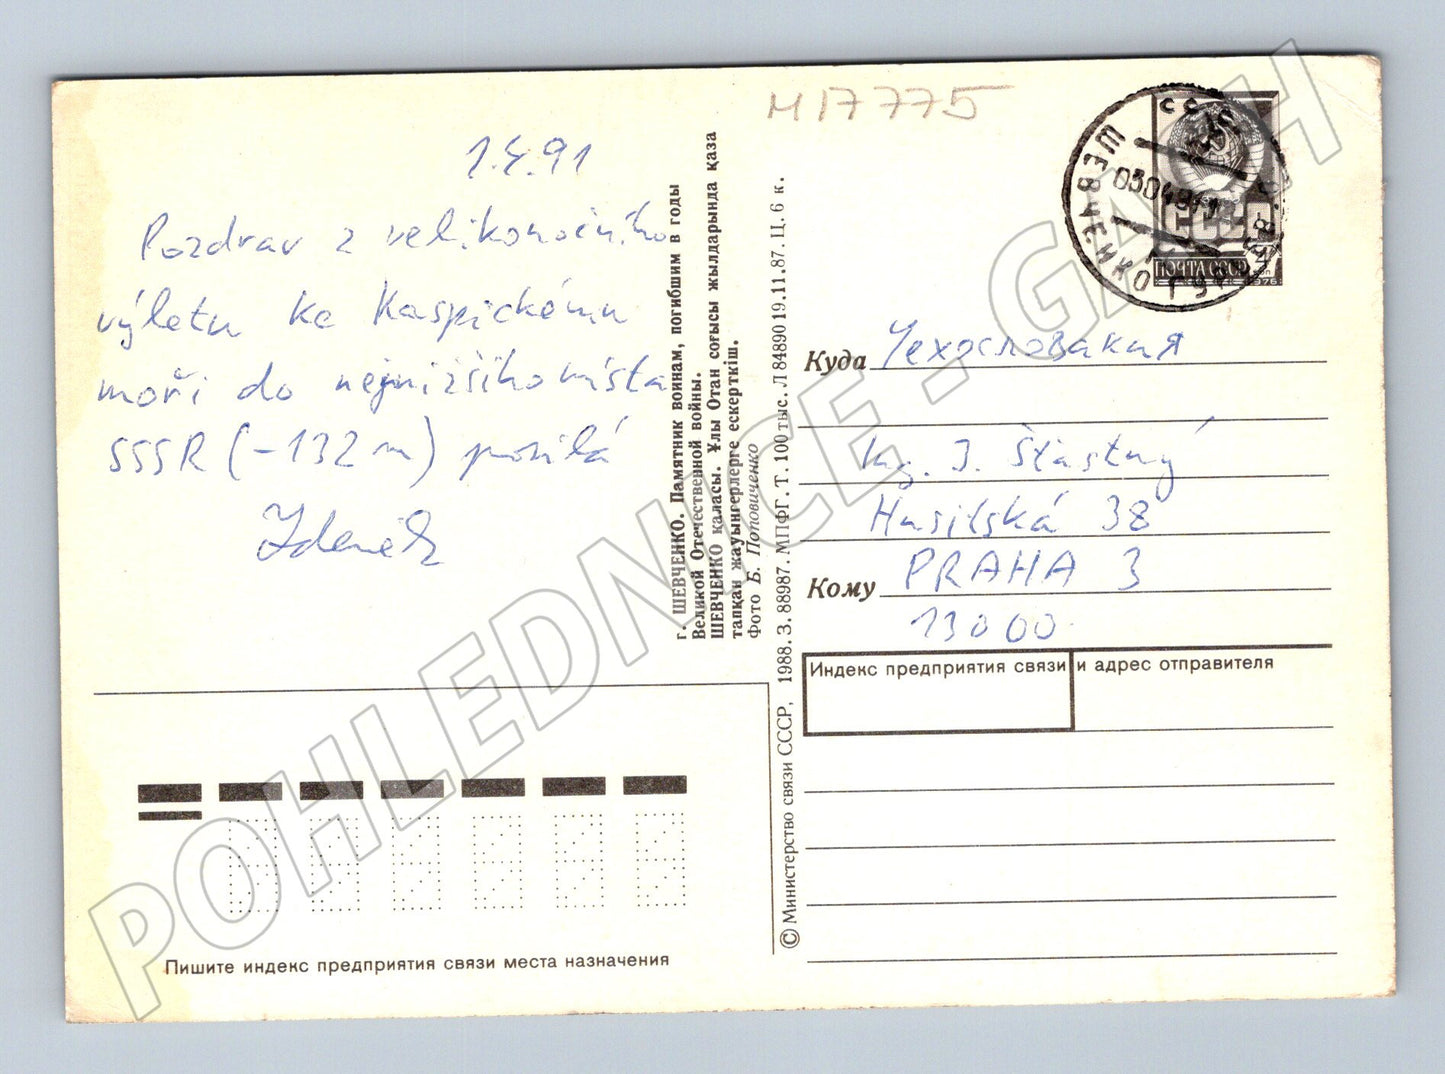 М17775
1.4.91
Pozdrav z velikonočního
výletu ke Kaspickému
moři do nejnižšího místa
SSSR (-132 m) posílá
Zdeněk
г. ШЕВЧЕНКО. Памятник воинам, погибшим в годы
Великой Отечественной войны.
ШЕВЧЕНКО қаласы. Ұлы Отан соғысы жылдарында қаза
тапқан жауынгерлерге ескерткіш.
Фото Б. Поповиченко
© Министерство связи СССР, 1988. З. 88987. МПФГ. Т. 100 тыс. Л 84890 19.11.87. Ц. 6 к.
ПОЧТА СССР
1976
СССР
ШЕВЧЕНКО
030491
Куда Чехословакия
Ing. J. Šťastný
Husitská 38
Кому PRAHA 3
13000
Индекс предприятия связи и адрес отправителя
Пишите индекс предприятия связи места назначения
POHLEDNICE - GACH